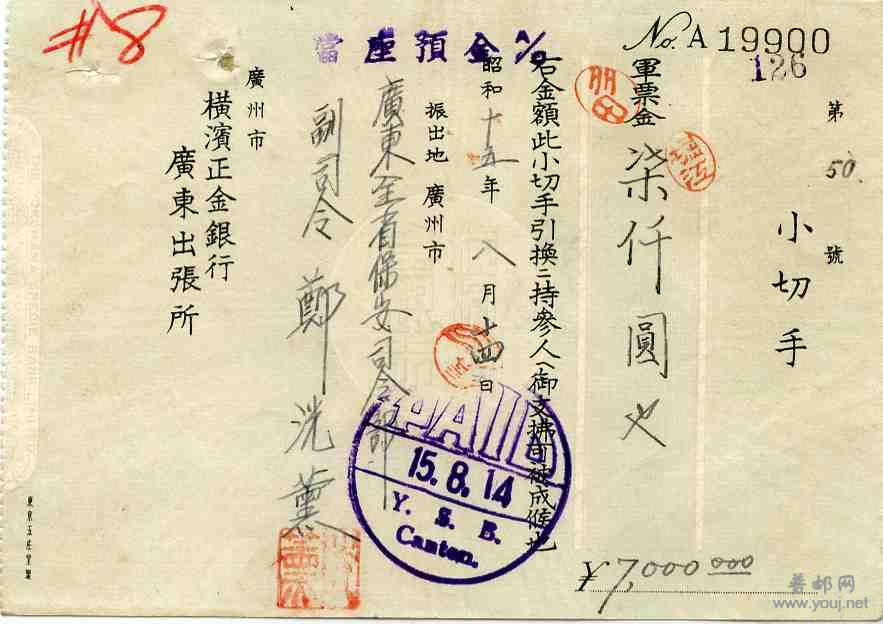 #8
當座預金 A/C
No. A 19900
126
第 50 號
小切手
軍票金 柒仟圓也
右金額此小切手引換ニ持參人へ御支拂可被成候也
昭和十五年八月十四日
振出地 廣州市
廣東全省保安司令部
副司令 鄭洸薰
廣州市
橫濱正金銀行
廣東出張所
PAID
15.8.14
Y. S. B.
Canton.
¥7,000 000
普邮网
www.youj.net